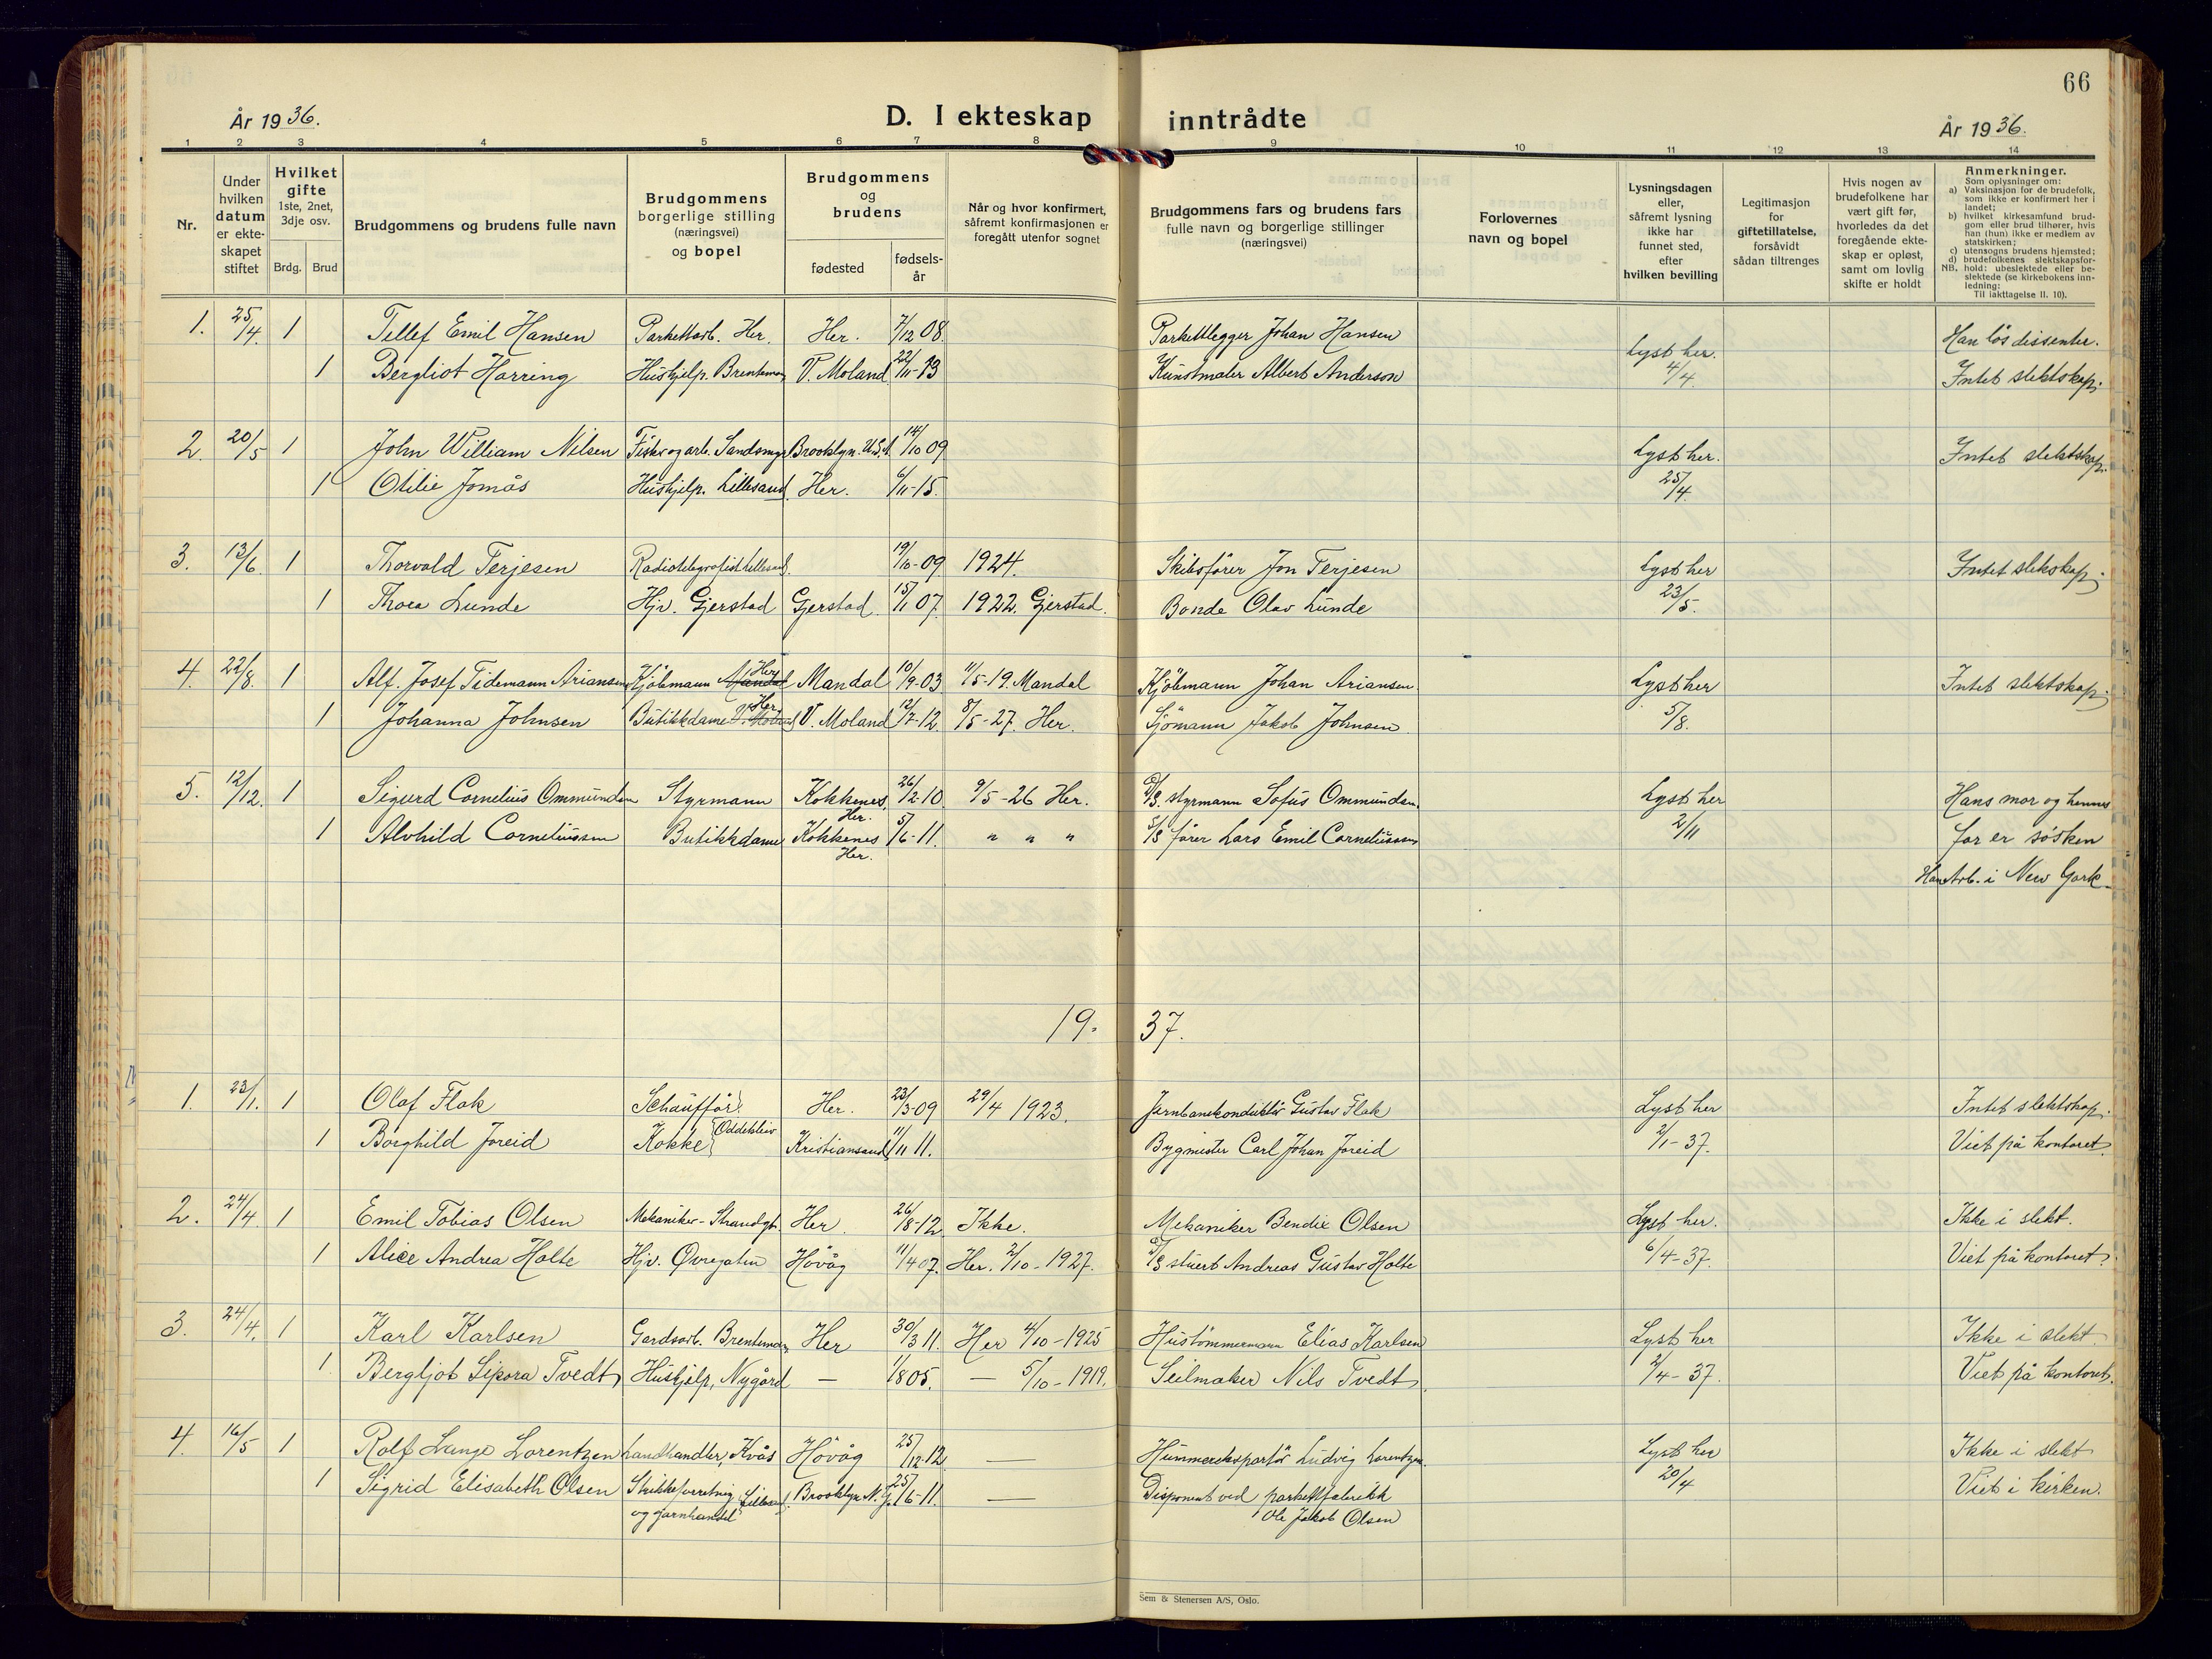 66
År 1936.
D. I ekteskap inntrådte
År 1936.
1 2 3 4 5 6 7 8 9 10 11 12 13 14
Nr.
Under hvilken datum er ekteskapet stiftet
Hvilket gifte 1ste, 2net, 3dje osv.
Brdg. Brud
Brudgommens og brudens fulle navn
Brudgommens borgerlige stilling (næringsvei) og bopel
Brudgommens og brudens
fødested
fødselsår
Når og hvor konfirmert, såfremt konfirmasjonen er foregått utenfor sognet
Brudgommens fars og brudens fars fulle navn og borgerlige stillinger (næringsvei)
Forlovernes navn og bopel
Lysningsdagen eller, såfremt lysning ikke har funnet sted, efter hvilken bevilling
Legitimasjon for giftetillatelse, forsåvidt sådan tiltrenges
Hvis nogen av brudefolkene har vært gift før, hvorledes da det foregående ekteskap er opløst, samt om lovlig skifte er holdt
Anmerkninger.
Som oplysninger om:
a) Vaksinasjon for de brudefolk, som ikke er konfirmert her i landet;
b) hvilket kirkesamfund brudgom eller brud tilhører, hvis han (hun) ikke er medlem av statskirken;
c) utensogns brudens hjemsted;
d) brudefolkenes slektskapsforhold: ubeslektede eller beslektede (se kirkebokens innledning:
NB.
Til iakttagelse II. 10).
1. 25/4. 1 Tellef Emil Hansen Parkettarb. Her. Her. 7/12 08. Parkettlegger Johan Hansen Lyst her. 4/4 Han lös dissenter.
1 Bergliot Harring Hushjelp. Brentemoen V. Moland 22/11-13 Kunstmaler Albert Anderson Intet slektskap.
2. 20/5 1 John William Nilsen Fisker og arb. Sandsmyr Brooklyn. U.S.A. 14/10 09 Lyst her. 25/4 Intet slektskap.
1 Otilie Jomås Hushjelp. Lillesand. Her. 6/11-15.
3. 13/6. 1 Thorvald Terjesen Radiotelegrafist Lillesand. 19/10-09 1924. Skibsfører Jon Terjesen Lyst her 23/5. Intet slekskap.
1 Thora Lunde Hjv. Gjerstad Gjerstad. 15/1 07. 1922. Gjerstad. Bonde Olav Lunde
4. 22/8. 1 Alf. Josef Tidemann Ariansen Kjöbmann Mandal Her Mandal 10/9-03 11/5-19. Mandal Kjöbmann Johan Ariansen Lyst her 5/8. Intet slektskap.
1 Johanna Johnsen Butikkdame V. Moland Her V. Moland 12/7-12. 8/5-27. Her. Sjömann Jakob Johnsen
5. 12/12. 1 Sigurd Cornelius Ommundsen Styrmann Kokkenes Her. 26/2-10 9/5-26 Her. D/S. styrmann Sofus Ommundsen. Lyst her 2/11 Hans mor og hennes
1 Alvhild Corneliussen Butikkdame Kokkenes Her. 5/6-11. " " " S/S fører Lars Emil Corneliussen far er søsken
Han Arb. i New York.
19. 37.
1. 23/1. 1 Olaf Flak Schauffør Oddekleiv Her. 23/3-09 29/4 1923. Jernbanekonduktör Gustav Flak Lyst her 2/1-37. Intet slektskap.
1 Borghild Joreid Kokke Kristiansand 11/11 11. Bygmester Carl Johan Joreid Viet på kontoret.
2. 24/4. 1 Emil Tobias Olsen Mekaniker-Strandgt. Her. 26/8-12. Ikke. Mekaniker Bendix Olsen Lyst her. 6/4-37. Ikke i slekt.
1 Alice Andrea Holte Hjv. Øvregaten Høvåg 11/4 07. Her. 2/10-1927. D/S stuert Andreas Gustav Holte Viet på kontoret.
3. 24/4. 1 Karl Karlsen Gardsarb. Brentemoen Her 30/3 11. Her 4/10-1925 Hustömmermann Elias Karlsen Lyst her 2/4-37. Ikke i slekt
1. Bergljot Sipora Tvedt Hushjelp, Nygård — 1/8 05. — 5/10-1919. Seilmaker Nils Tvedt Viet på kontoret.
4. 16/5 1 Rolf Lange Lorentzen Landhandler, Kvås Høvåg 25/12-12 — Hummereksportör Ludvig Lorentzen. Lyst her 20/4 Ikke i slekt
1 Sigrid Elisabeth Olsen Strikkeforretning og garnhandel Lillesand. Brooklyn N.Y. 25/6-11. — Disponent ved parkettfabrikk Ole Jakob Olsen Viet i kirken.
Sem & Stenersen A/S, Oslo.